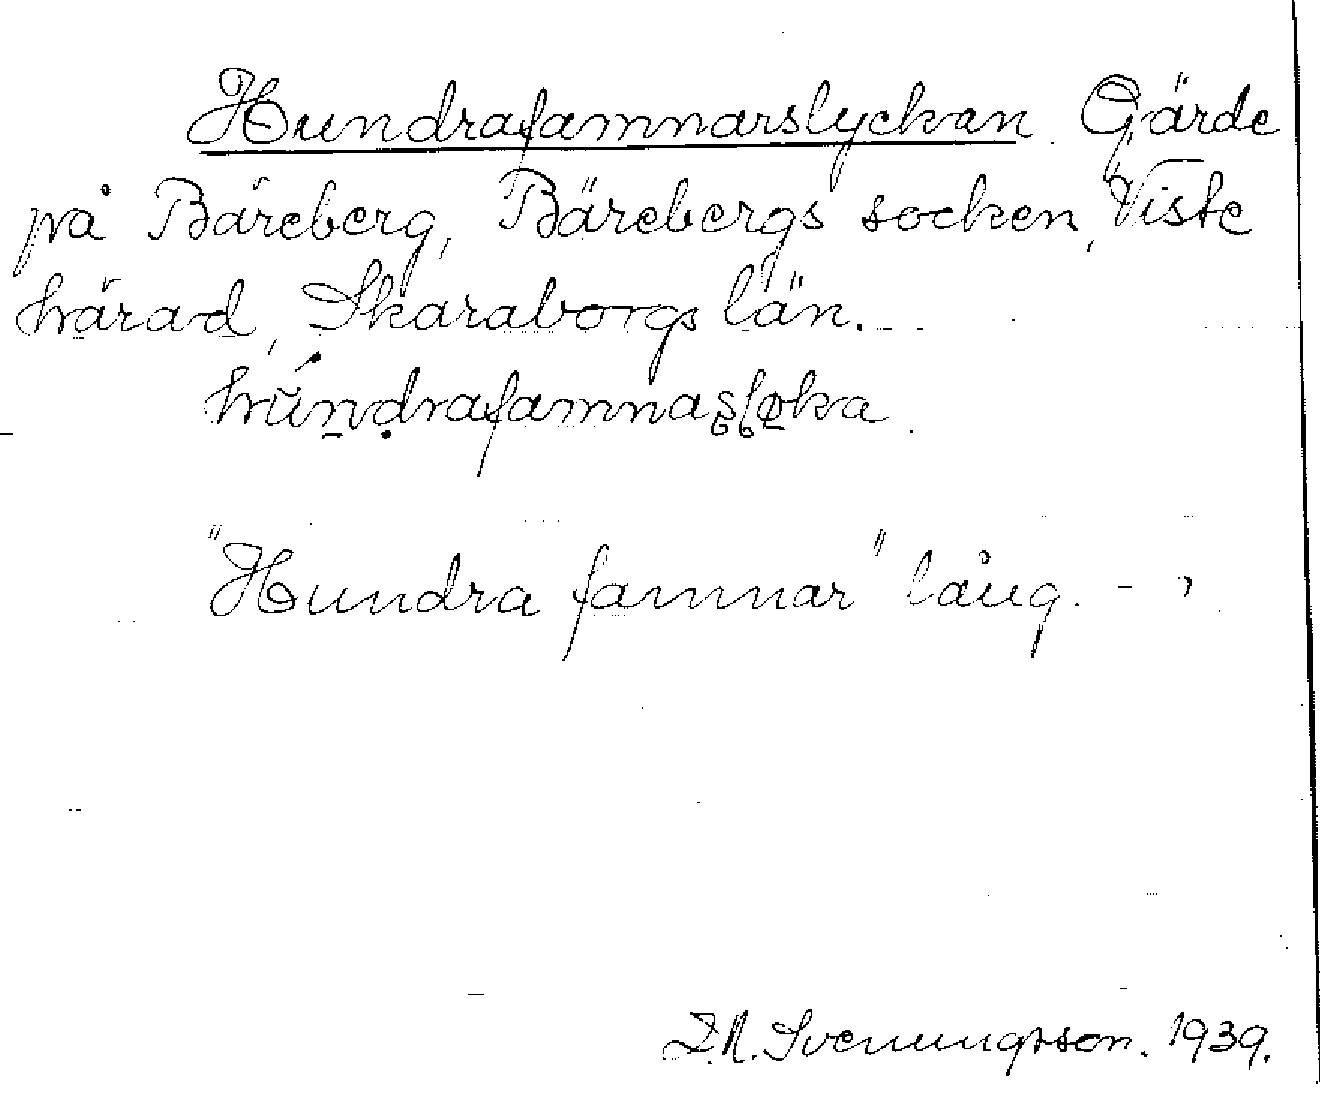 Hundrafamnarslyckan Gärde
på Bäreberg, Bärebergs socken, Viste
härad, Skaraborgs län.
hundrafamnasløka
"Hundra famnar" lång. - ?
D.N. Svenungsson. 1939.